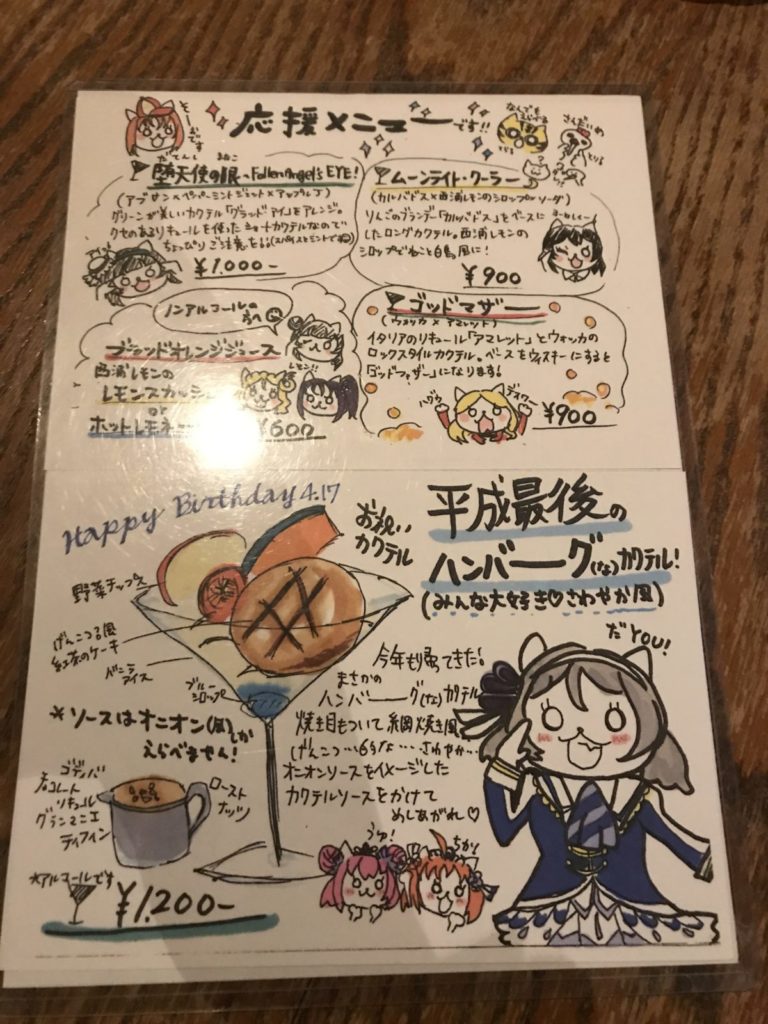 応援メニューです!!
そーおです
なんでも
さんだいめ
とら
とり
堕天使の眼〜Fallen Angel's EYE!
だてんし
(アブサン×ペパーミントジェット×アップルJ)
グリーンが美しいカクテル「グランドアイ」をアレンジ。
クセのあるリキュールを使ったショートカクテルなので
ちょっぴりご注意を!!
¥1,000-
ムーンライト・クーラー
(カルバドス×西浦レモンのシロップ×ソーダ)
りんごのブランデー「カルバドス」をベースに
したロングカクテル。西浦レモンの
シロップでねこと白鳥風に!
¥900
ノンアルコールの
方へ
ブラッドオレンジジュース
西浦レモンの
レモンスカッシュ
or
ホットレモネード
レモン!!
¥600
ゴッドマザー
(ウォッカ×アマレット)
イタリアのリキュール「アマレット」とウォッカの
ロックスタイルカクテル。ベースをウィスキーにすると
「ゴッドファザー」になります!
ハグゥ
デスワー
¥900
Happy Birthday 4.17
お祝い
カクテル
平成最後の
ハンバーグ(な)カクテル!
(みんな大好き♡さわやか風)
だYOU!
野菜チップス
げんこつ風
紅茶のケーキ
バニラ
アイス
ブルー
シロップ
今年も帰ってきた!
まさかの
ハンバーーグ(な)カクテル
焼き目もついて網焼き風
(げんこつ…もうな…さわやか…
オニオンソースをイメージした
カクテルソースをかけて
めしあがれ♡
*ソースはオニオン(風)しか
えらべません!
ゴディバ
チョコレート
リキュール
グランマニエ
ティフィン
ロースト
ナッツ
*アルコールです
¥1,200-
うゅ!
ちか!